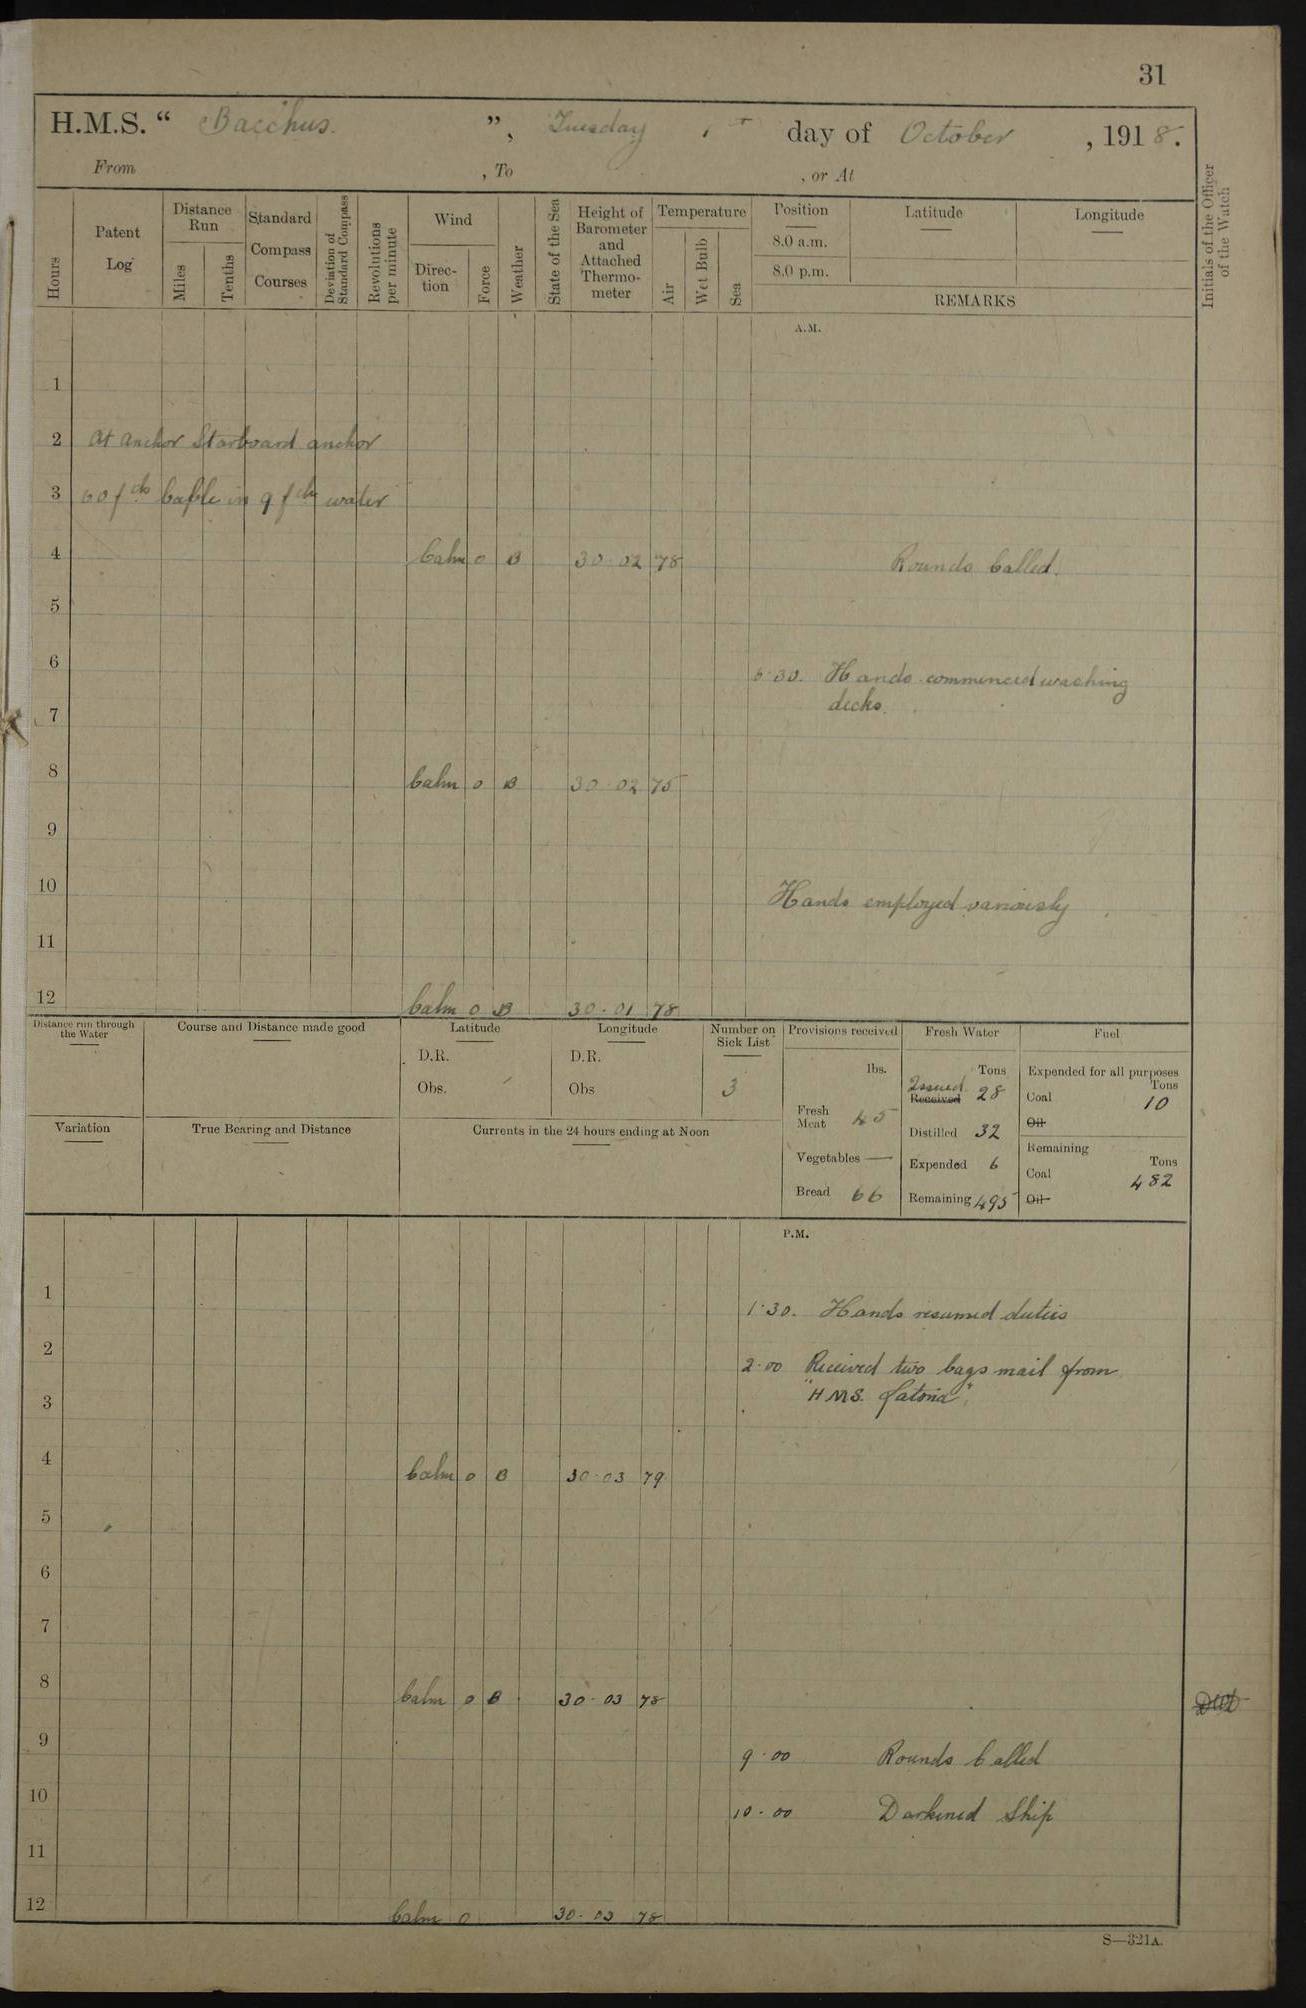 31
H.M.S. “ Bacchus. ”, Tuesday 1st day of October , 1918.
From , To , or At
Hours
Patent Log
Distance Run
Miles
Tenths
Standard Compass Courses
Deviation of Standard Compass
Revolutions per minute
Wind
Direction
Force
Weather
State of the Sea
Height of Barometer and Attached Thermometer
Temperature
Air
Wet Bulb
Sea
Position
8.0 a.m.
8.0 p.m.
Latitude
Longitude
REMARKS
Initials of the Officer of the Watch
A.M.
1
2 At anchor Starboard anchor
3 60 fths Cable in 9 fths water
4 Calm 0 B 30·02 78 Rounds Called.
5
6
6·30. Hands commenced washing
decks.
7
8 Calm 0 B 30·02 75
9
10 Hands employed variously
11
12 Calm 0 B 30·01 78
Distance run through the Water
Course and Distance made good
Latitude
D.R.
Obs.
Longitude
D.R.
Obs
Number on Sick List
3
Variation
True Bearing and Distance
Currents in the 24 hours ending at Noon
Provisions received
lbs.
Fresh Meat 45
Vegetables —
Bread 66
Fresh Water
Tons
Issued
Received 28
Distilled 32
Expended 6
Remaining 495
Fuel
Expended for all purposes
Tons
Coal 10
Oil
Remaining
Tons
Coal 482
Oil
P.M.
1
1·30. Hands resumed duties
2
2·00 Received two bags mail from
"H.M.S. Latona".
3
4 Calm 0 B 30·03 79
5
6
7
8 Calm 0 B 30·03 78
9
9·00 Rounds Called
10
10·00 Darkened Ship
11
12 Calm 0 30·03 78
S—321A.